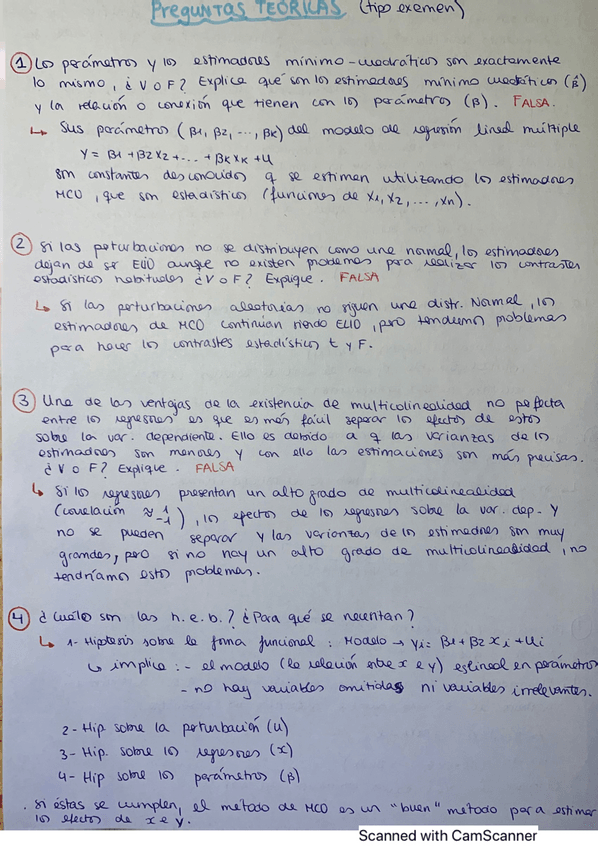 PREGUNTAS TEÓRICAS (tipo examen)
① Los parámetros y los estimadores mínimo-cuadráticos son exactamente
lo mismo, ¿V o F? Explica qué son los estimadores mínimo cuadráticos (β̂)
y la relación o conexión que tienen con los parámetros (β). FALSA.
↳ Sus parámetros (β1, β2, ..., βk) del modelo de regresión lineal múltiple
Y = β1 + β2X2 + ... + βkXk + U
son constantes desconocidos q se estiman utilizando los estimadores
MCO, que son estadísticos (funciones de X1, X2, ..., Xn).
② Si las perturbaciones no se distribuyen como una normal, los estimadores
dejan de ser ELIO aunque no existen problemas para realizar los contrastes
estadísticos habituales ¿V o F? Explique. FALSA
↳ Si las perturbaciones aleatorias no siguen una distr. Normal, los
estimadores de MCO continúan siendo ELIO, pero tendremos problemas
para hacer los contrastes estadístics t y F.
③ Una de las ventajas de la existencia de multicolinealidad no perfecta
entre los regresores es que es más fácil separar los efectos de estos
sobre la var. dependiente. Ello es debido a q las varianzas de los
estimadores son menores y con ello las estimaciones son más precisas.
¿V o F? Explique. FALSA
↳ Si los regresores presentan un alto grado de multicolinealidad
(correlación ≈ 1 -1), los efectos de los regresores sobre la var. dep. Y
no se pueden separar y las varianzas de los estimadores son muy
grandes, pero si no hay un alto grado de multicolinealidad, no
tendríamos estos problemas.
④ ¿Cuáles son las h.e.b.? ¿Para qué se necesitan?
↳ 1- Hipótesis sobre la forma funcional: Modelo → Yi = β1 + β2Xi + Ui
↳ implica: - el modelo (la relación entre x e y) es lineal en parámetros
- no hay variables omitidas ni variables irrelevantes.
2- Hip. sobre la perturbación (u)
3- Hip. sobre los regresores (x)
4- Hip sobre los parámetros (β)
. Si éstas se cumplen, el método de MCO es un "buen" método para estimar
los efectos de x e y.
Scanned with CamScanner